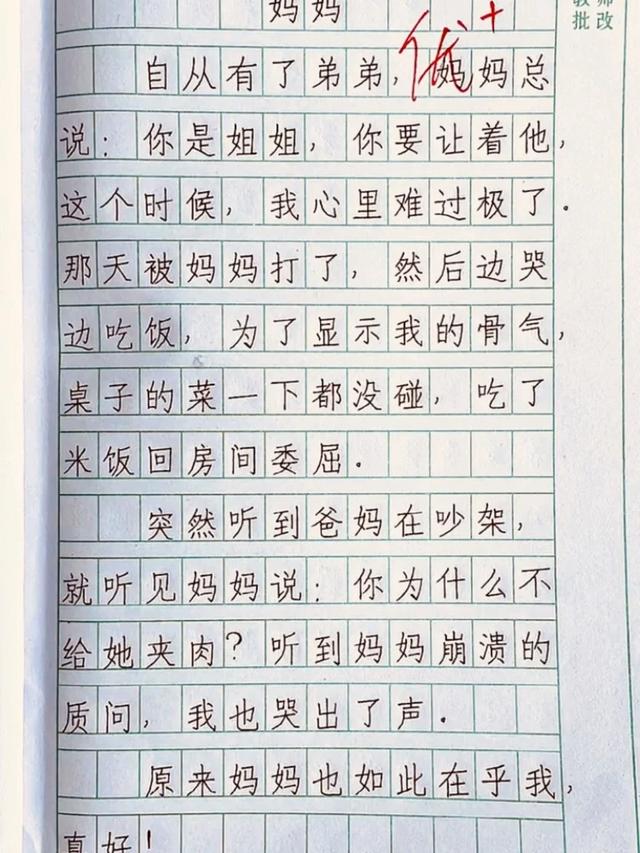 师
批改
妈妈
优+
自从有了弟弟，妈妈总
说：你是姐姐，你要让着他，
这个时候，我心里难过极了．
那天被妈妈打了，然后边哭
边吃饭，为了显示我的骨气，
桌子的菜一下都没碰，吃了
米饭回房间委屈．
突然听到爸妈在吵架，
就听见妈妈说：你为什么不
给她夹肉？听到妈妈崩溃的
质问，我也哭出了声．
原来妈妈也如此在乎我，
真好！